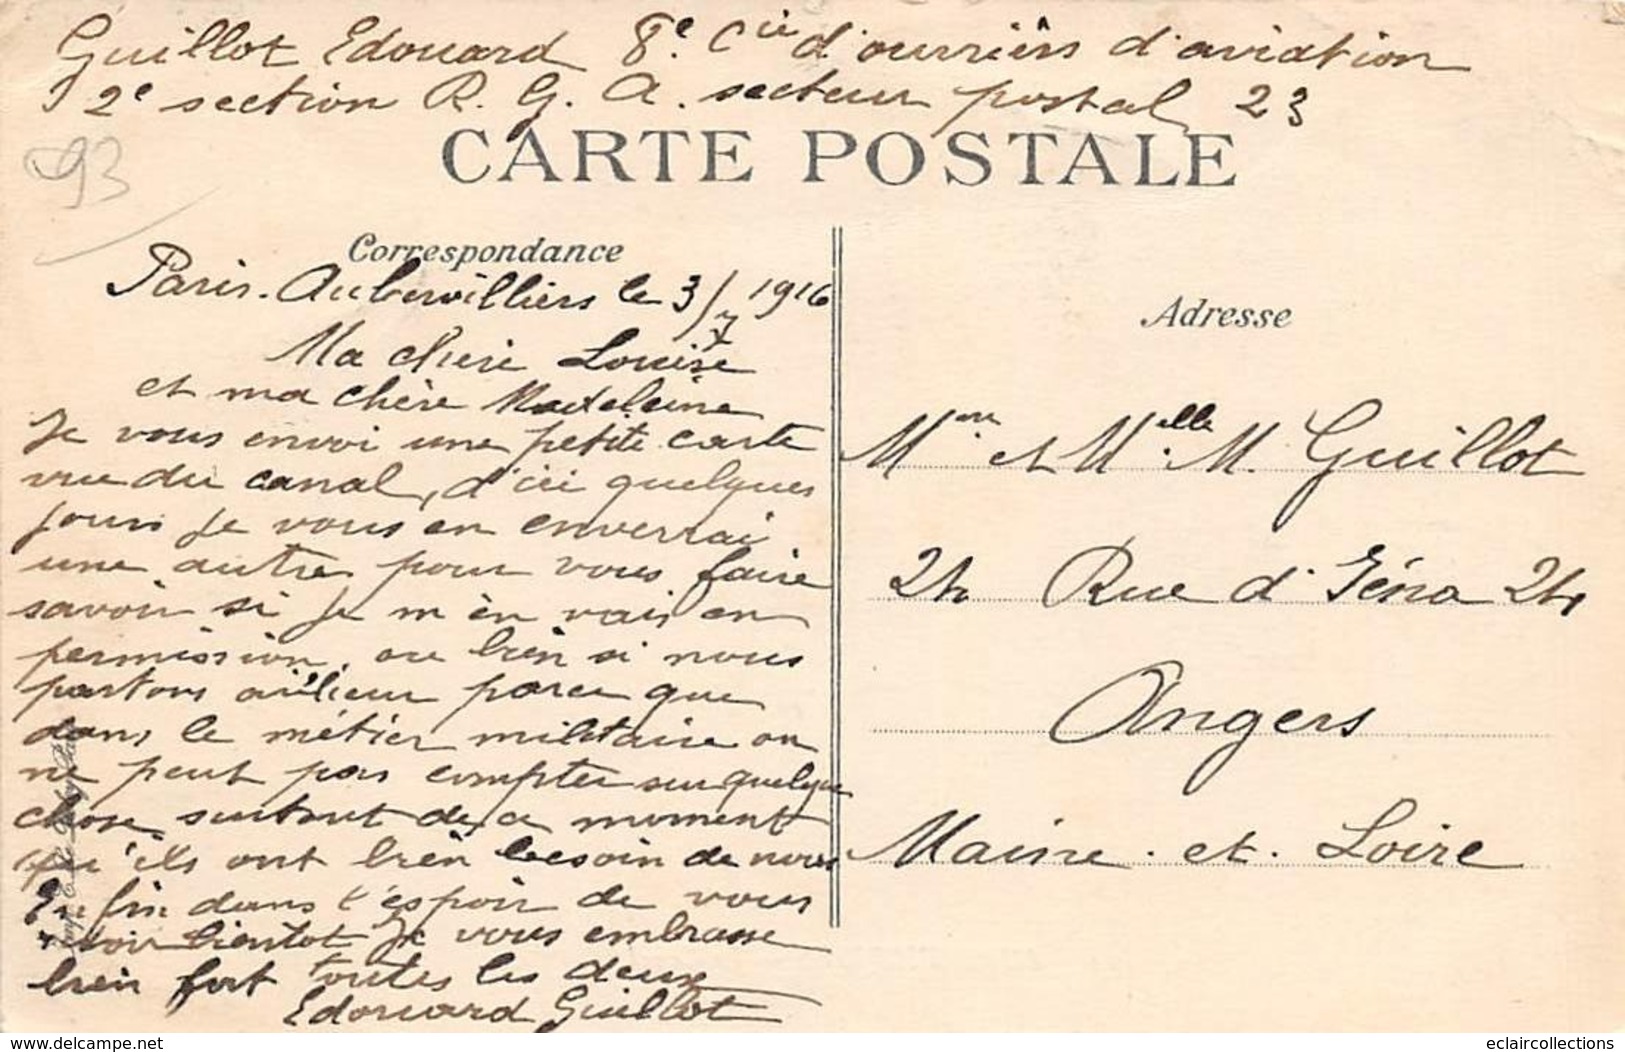 Guillot Edouard 8e Cie d'ouvriérs d'aviation
2e section R. G. A. secteur postal 23
CARTE POSTALE
93
Correspondance
Paris-Aubervilliers le 3/7 1916
Ma chere Louise
et ma chère Madeleine
Je vous envoi une petite carte
vue du canal, d'ici quelques
jours je vous en enverrai
une autre pour vous faire
savoir si je m'en vais en
permission, ou bien si nous
partons ailieur parce que
dans le métier militaire on
ne peut pas compter sur quelque
chose surtout de ce moment
qu'ils ont bien besoin de nous
Enfin dans l'éspoir de vous
voir bientot Je vous embrasse
bien fort toutes les deux
Edouard Guillot
Adresse
Mme et Melle M. Guillot
24 Rue d'Iéna 24
Angers
Maine-et-Loire
www.delcampe.net
eclaircollections